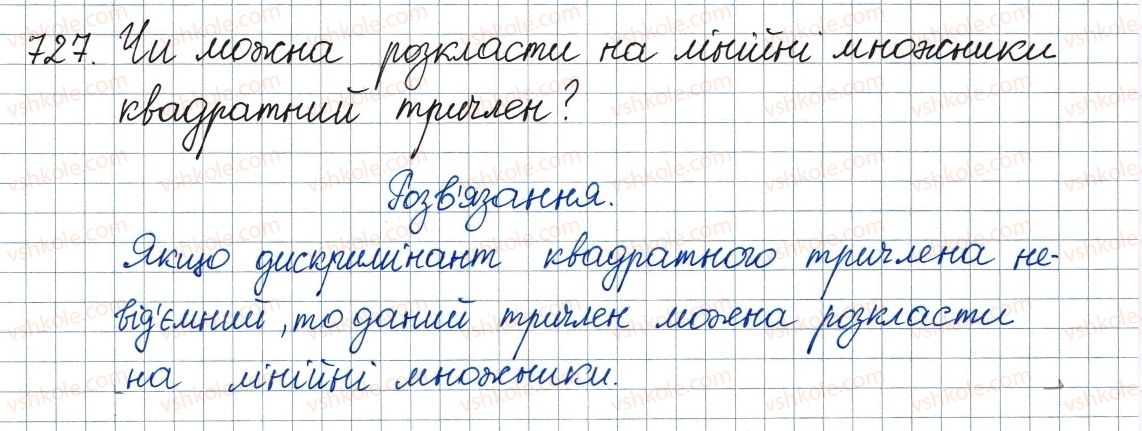 727. Чи можна розкласти на лінійні множники
квадратний тричлен?
Розв'язання.
Якщо дискримінант квадратного тричлена не-
від'ємний, то даний тричлен можна розкласти
на лінійні множники.